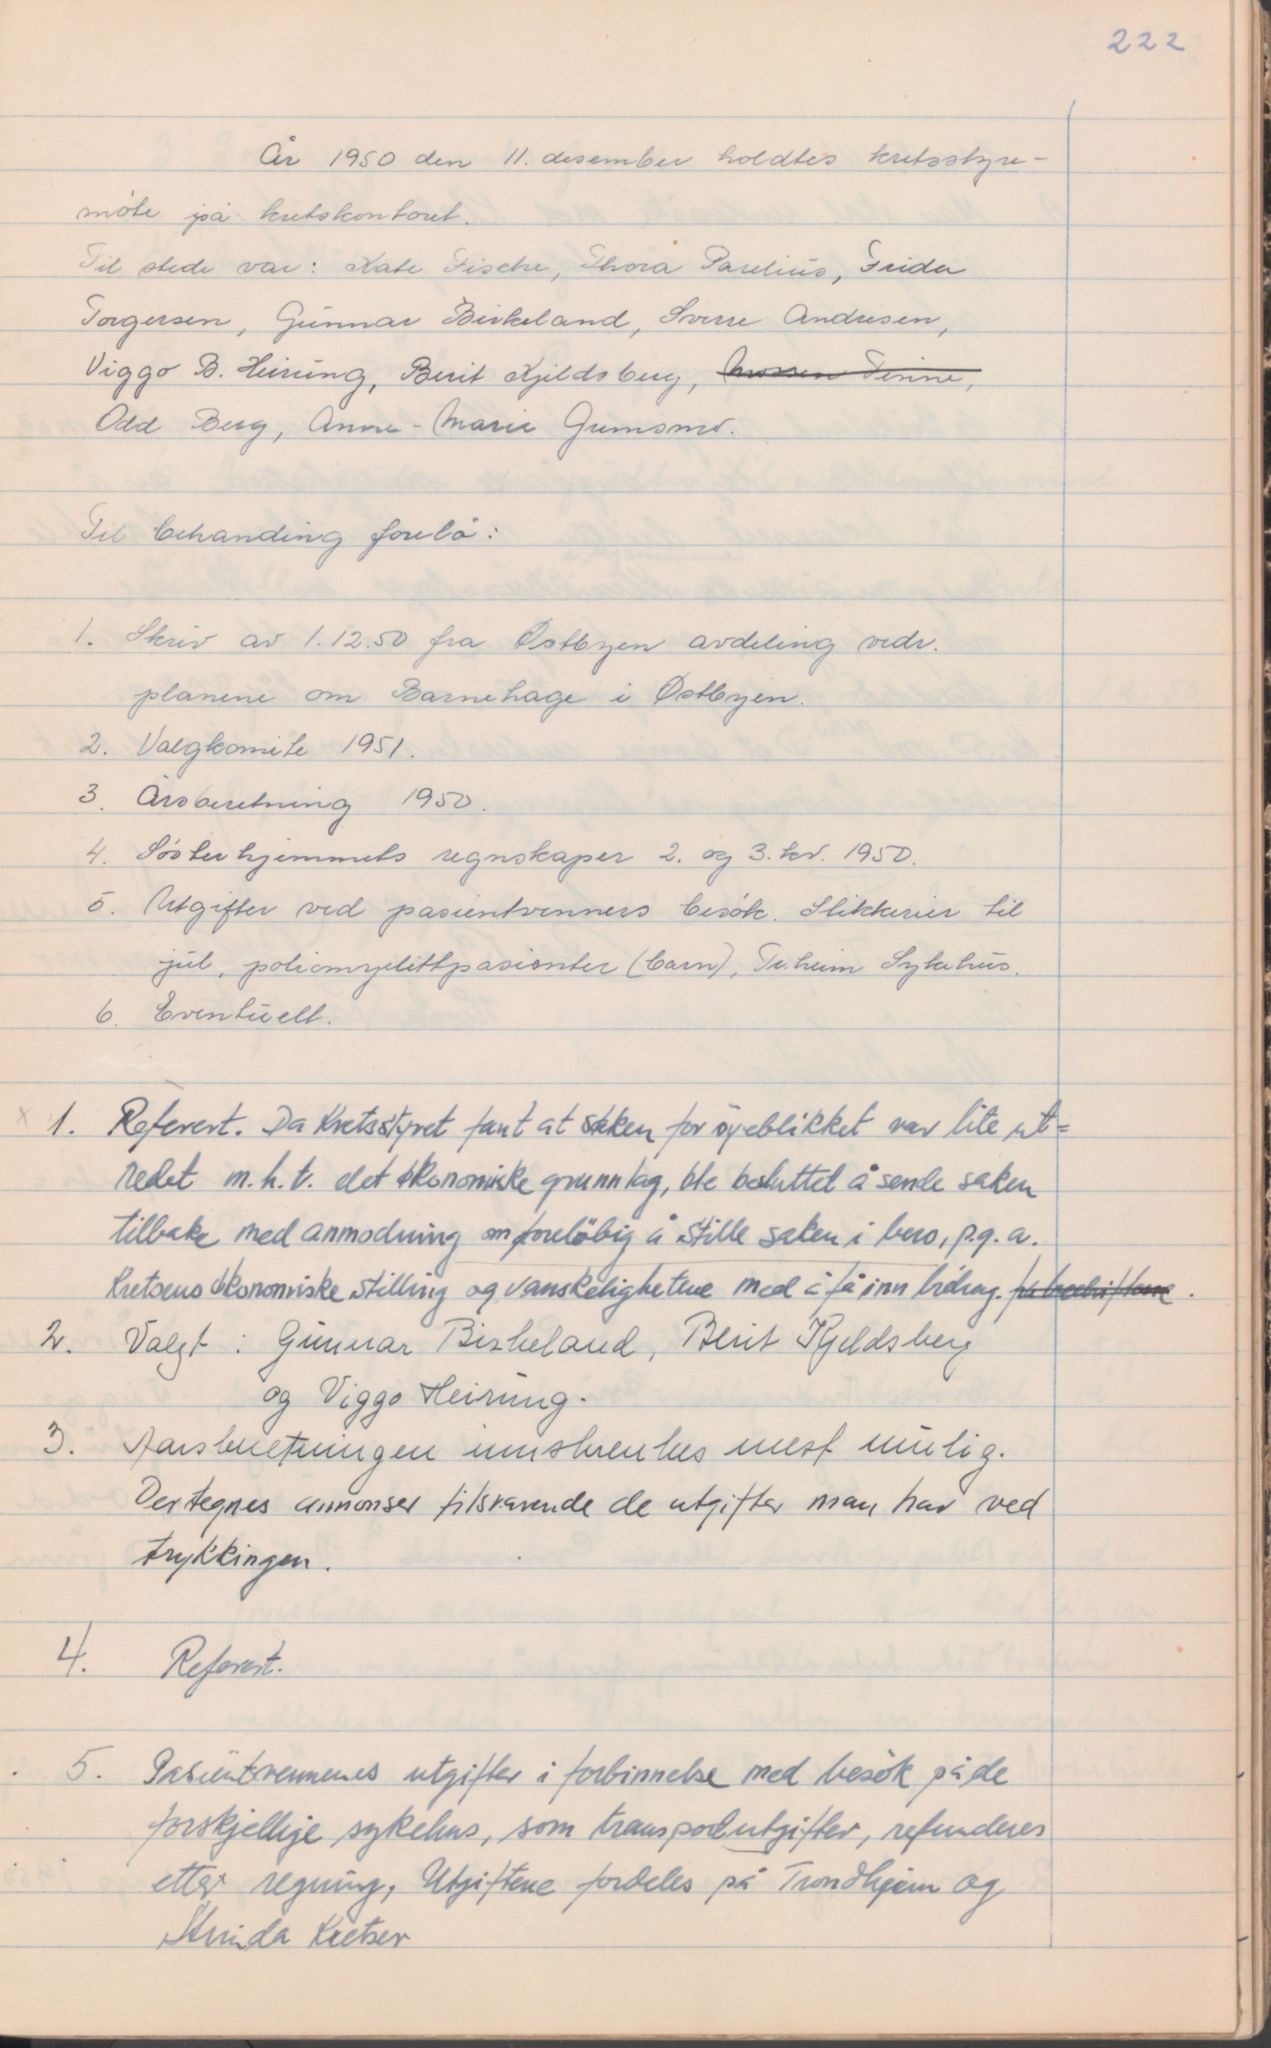 222
År 1950 den 11. desember holdtes kretsstyre-
möte på kretskontoret.
Til stede var: Kate Fische, Thora Parelius, Frida
Torgersen, Gunnar Birkeland, Sverre Andresen,
Viggo B. Heirung, Berit Kjeldsberg, Finne,
Odd Berg, Anne-Marie Gremsmo.
Til behanding forelå:
1. Skriv av 1.12.50 fra Østbyen avdeling vedr.
planene om Barnehage i Østbyen.
2. Valgkomite 1951.
3. Årsberetning 1950.
4. Sösterhjemmets regnskaper 2. og 3. kv. 1950.
5. Utgifter ved pasientvenners besök. Slikkerier til
jul, poliomyelittpasienter (barn), Tr.heim Sykehus.
6. Eventuelt.
x 1. Referert. Da Kretsstyret fant at saken for öyeblikket var lite ut=
redet m.h.t. det ökonomiske grunnlag, ble besluttet å sende saken
tilbake med anmodning om foreløbig å stille saken i bero, p.g.a.
Kretsens økonomiske stilling og vanskelighetene med å få inn bidrag. fra bedriftene.
2. Valgt: Gunnar Birkeland, Berit Kjeldsberg
og Viggo Heirung.
3. Aarsberetningen innskrenkes mest mulig.
Der tegnes annonser tilsvarende de utgifter man har ved
trykkingen.
4. Referert.
5. Pasientvennenes utgifter i forbinnelse med besök på de
forskjellige sykehus, som transportutgifter, refunderes
etter regning, Utgiftene fordeles på Trondhjem og
Strinda Kretser